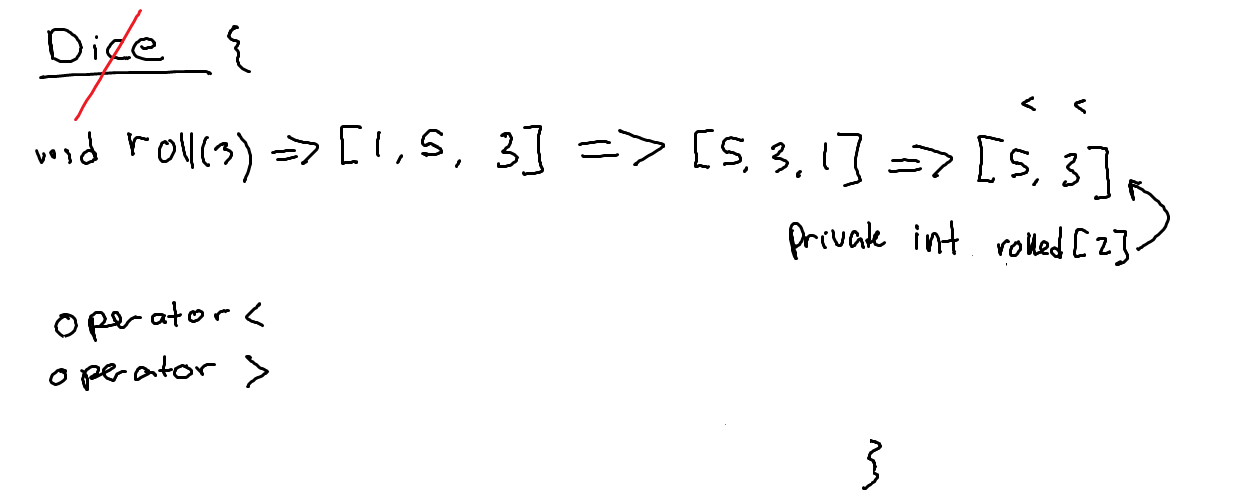 Dice {
< <
void roll(3) => [1, 5, 3] => [5, 3, 1] => [5, 3]
private int rolled[2]
operator <
operator >
}